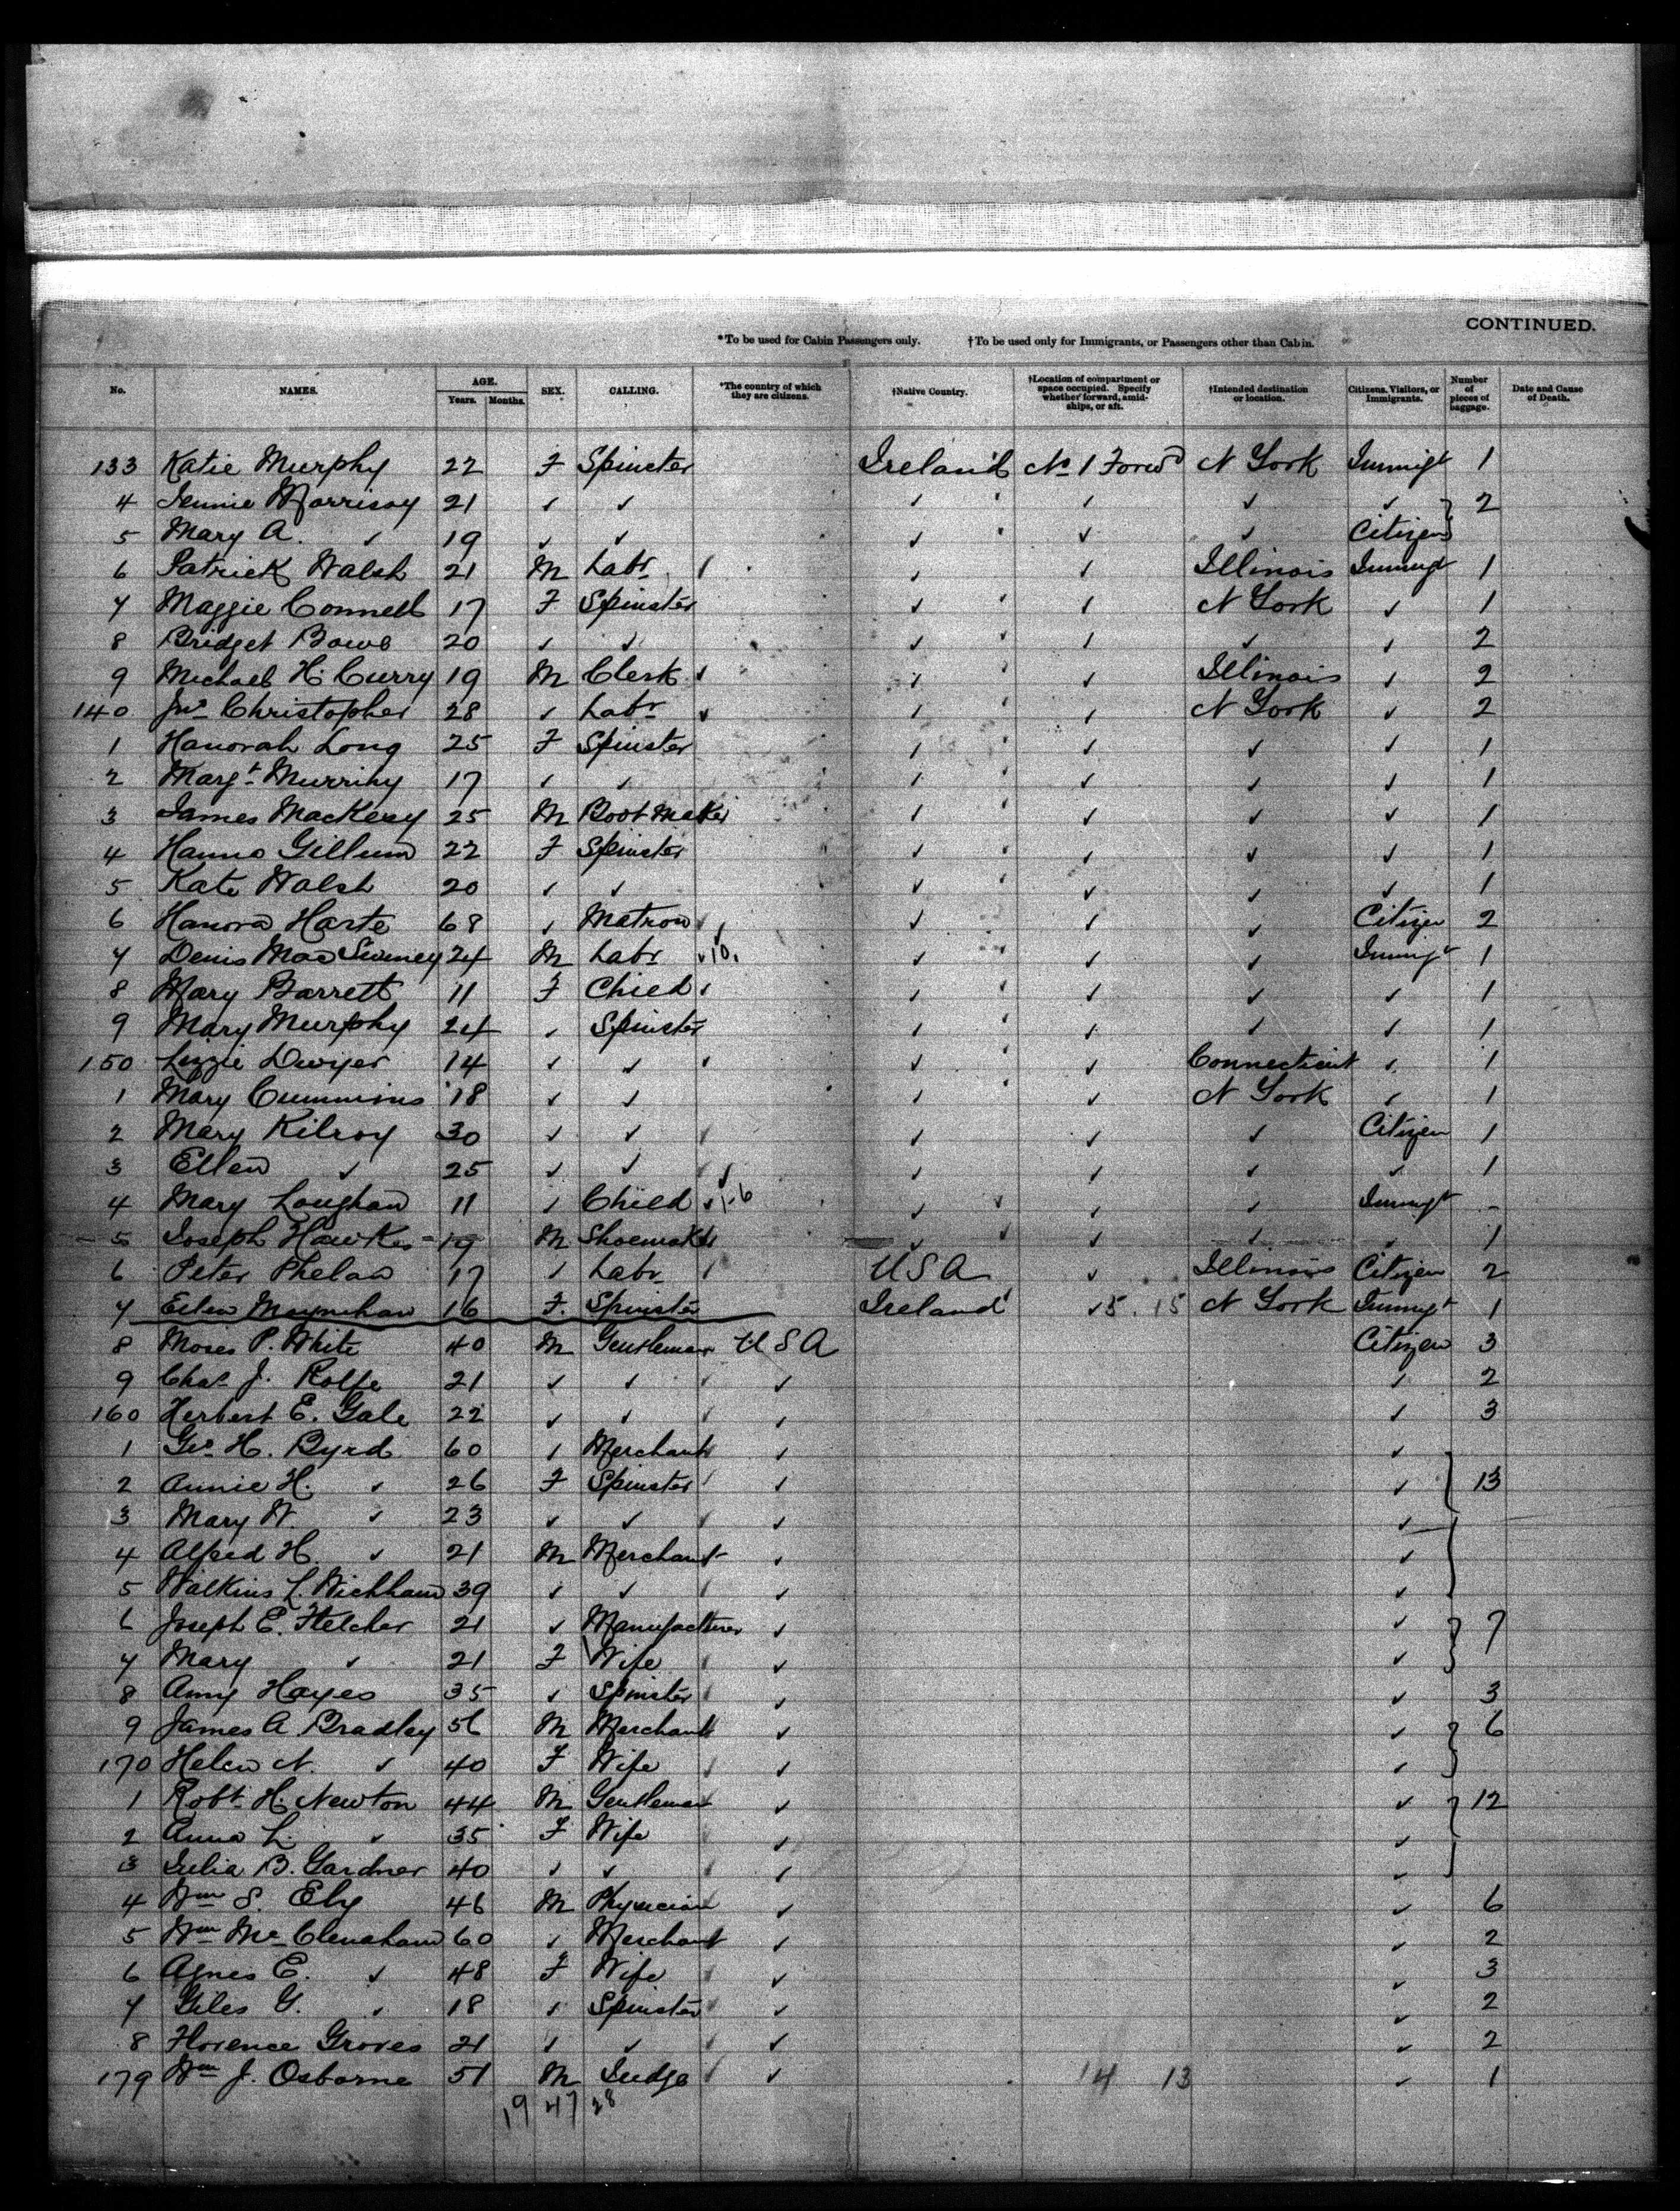 CONTINUED.
*To be used for Cabin Passengers only. †To be used only for Immigrants, or Passengers other than Cabin.
No. NAMES. AGE. Years. Months. SEX. CALLING. *The country of which they are citizens. †Native Country. †Location of compartment or space occupied. Specify whether forward, amidships, or aft. †Intended destination or location. Citizens, Visitors, or Immigrants. Number of pieces of baggage. Date and Cause of Death.
133 Katie Murphy 22 F Spinster Ireland No 1 Forwd N York Immigt 1
4 Jennie Morrisoy 21 ✓ ✓ ✓ ✓ ✓ ✓ 2
5 Mary A. ✓ 19 ✓ ✓ ✓ ✓ ✓ Citizen
6 Patrick Walsh 21 M Labr ✓ ✓ Illinois Immigt 1
7 Maggie Connell 17 F Spinster ✓ ✓ N York ✓ 1
8 Bridget Bowe 20 ✓ ✓ ✓ ✓ ✓ ✓ 2
9 Michael H. Curry 19 M Clerk ✓ ✓ Illinois ✓ 2
140 Jno Christopher 28 ✓ Labr ✓ ✓ N York ✓ 2
1 Hanorah Long 25 F Spinster ✓ ✓ ✓ ✓ 1
2 Margt Murriny 17 ✓ ✓ ✓ ✓ ✓ ✓ 1
3 James Mackesy 25 M Boot Maker ✓ ✓ ✓ ✓ 1
4 Hanna Gillum 22 F Spinster ✓ ✓ ✓ ✓ 1
5 Kate Walsh 20 ✓ ✓ ✓ ✓ ✓ ✓ 1
6 Hanora Harte 68 ✓ Matron ✓ ✓ ✓ Citizen 2
7 Denis MacSwiney 24 M Labr 10 ✓ ✓ ✓ Immigt 1
8 Mary Barrett 11 F Child ✓ ✓ ✓ ✓ 1
9 Mary Murphy 24 ✓ Spinster ✓ ✓ ✓ ✓ 1
150 Lizzie Dwyer 14 ✓ ✓ ✓ ✓ Connecticut ✓ 1
1 Mary Cummins 18 ✓ ✓ ✓ ✓ N York ✓ 1
2 Mary Kilroy 30 ✓ ✓ ✓ ✓ ✓ Citizen 1
3 Ellen ✓ 25 ✓ ✓ ✓ ✓ ✓ ✓ 1
4 Mary Loughan 11 ✓ Child 1-6 ✓ ✓ ✓ Immigt -
5 Joseph Hawkes 19 M Shoemaker ✓ ✓ ✓ ✓ 1
6 Peter Phelan 17 ✓ Labr USA ✓ Illinois Citizen 2
7 Ellen Moynihan 16 F. Spinster Ireland ✓ 5. 15 N York Immigt 1
8 Moses P. White 40 M Gentleman USA Citizen 3
9 Chas J. Rolfe 21 ✓ ✓ ✓ ✓ 2
160 Herbert E. Gale 22 ✓ ✓ ✓ ✓ 3
1 Geo H. Byrd 60 ✓ Merchant ✓ ✓
2 Annie H. ✓ 26 F Spinster ✓ ✓ 13
3 Mary W. ✓ 23 ✓ ✓ ✓ ✓
4 Alfred H. ✓ 21 M Merchant ✓ ✓
5 Watkins L. Wickham 39 ✓ ✓ ✓ ✓
6 Joseph E. Fletcher 21 ✓ Manufacturer ✓ ✓ 7
7 Mary ✓ 21 F Wife ✓ ✓
8 Amy Hayes 35 ✓ Spinster ✓ ✓ 3
9 James A Bradley 56 M Merchant ✓ ✓ 6
170 Helen N. ✓ 40 F Wife ✓ ✓
1 Robt. H. Newton 44 M Gentleman ✓ ✓ 12
2 Anna L. ✓ 35 F Wife ✓ ✓
3 Julia B. Gardner 40 ✓ ✓ ✓ ✓
4 Wm S. Ely 46 M Physician ✓ ✓ 6
5 Wm McClenahan 60 ✓ Merchant ✓ ✓ 2
6 Agnes E. ✓ 48 F Wife ✓ ✓ 3
7 Giles G. ✓ 18 ✓ Spinster ✓ ✓ 2
8 Florence Groves 21 ✓ ✓ ✓ ✓ 2
179 Wm J. Osborne 51 M Judge ✓ 14 13 ✓ 1
19 47 28